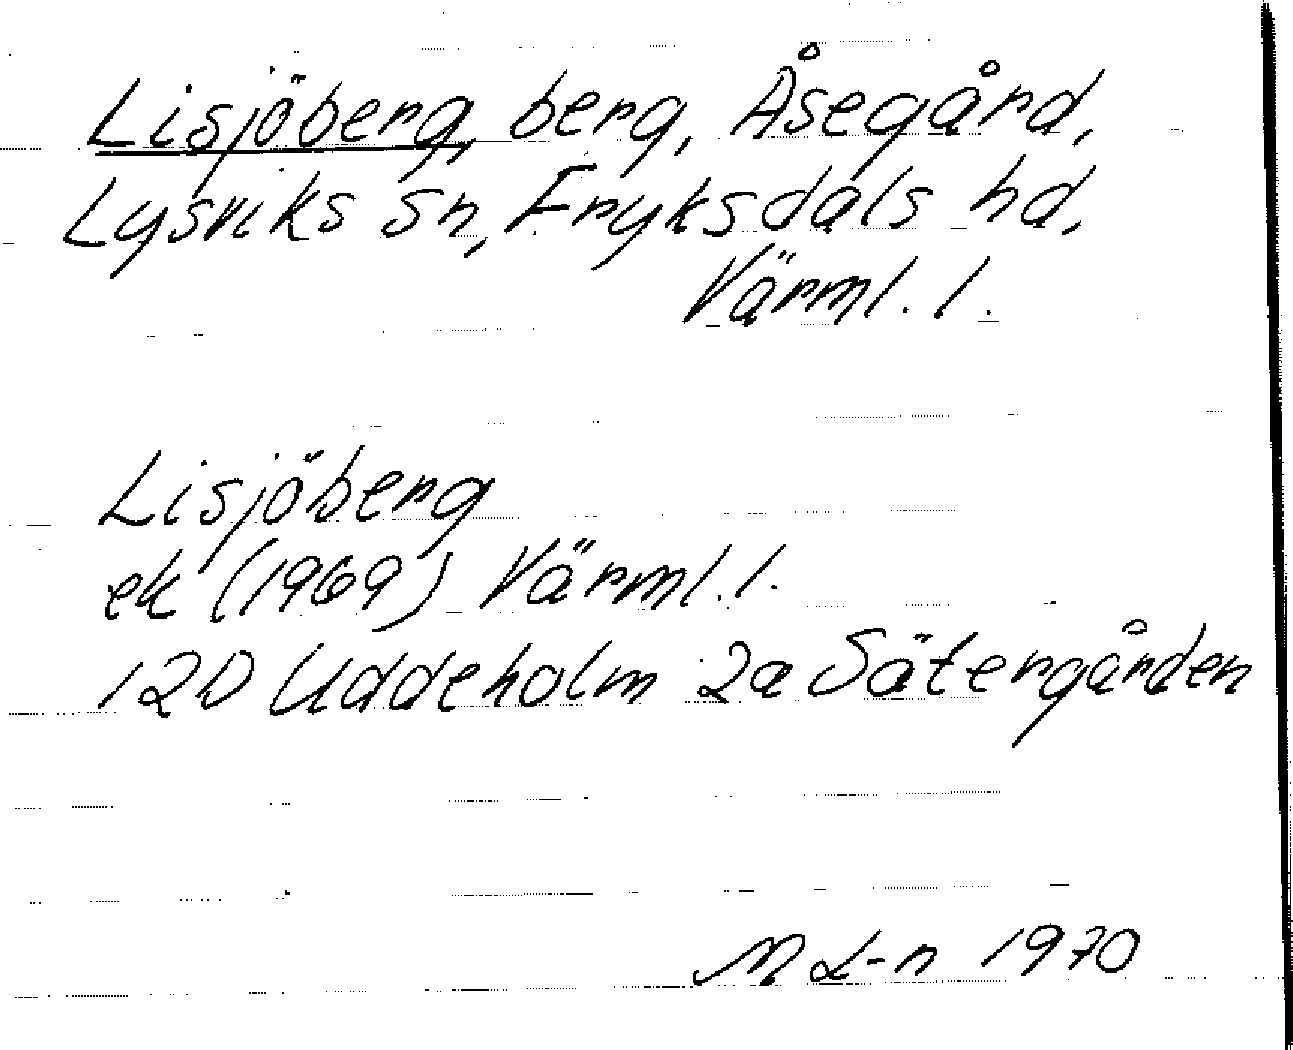 Lisjöberg, berg, Åsegård,
Lysviks sn, Fryksdals hd,
Värml. l.
Lisjöberg
ek (1969) Värml. l.
12D Uddeholm 2a Sätergården
M L-n 1970